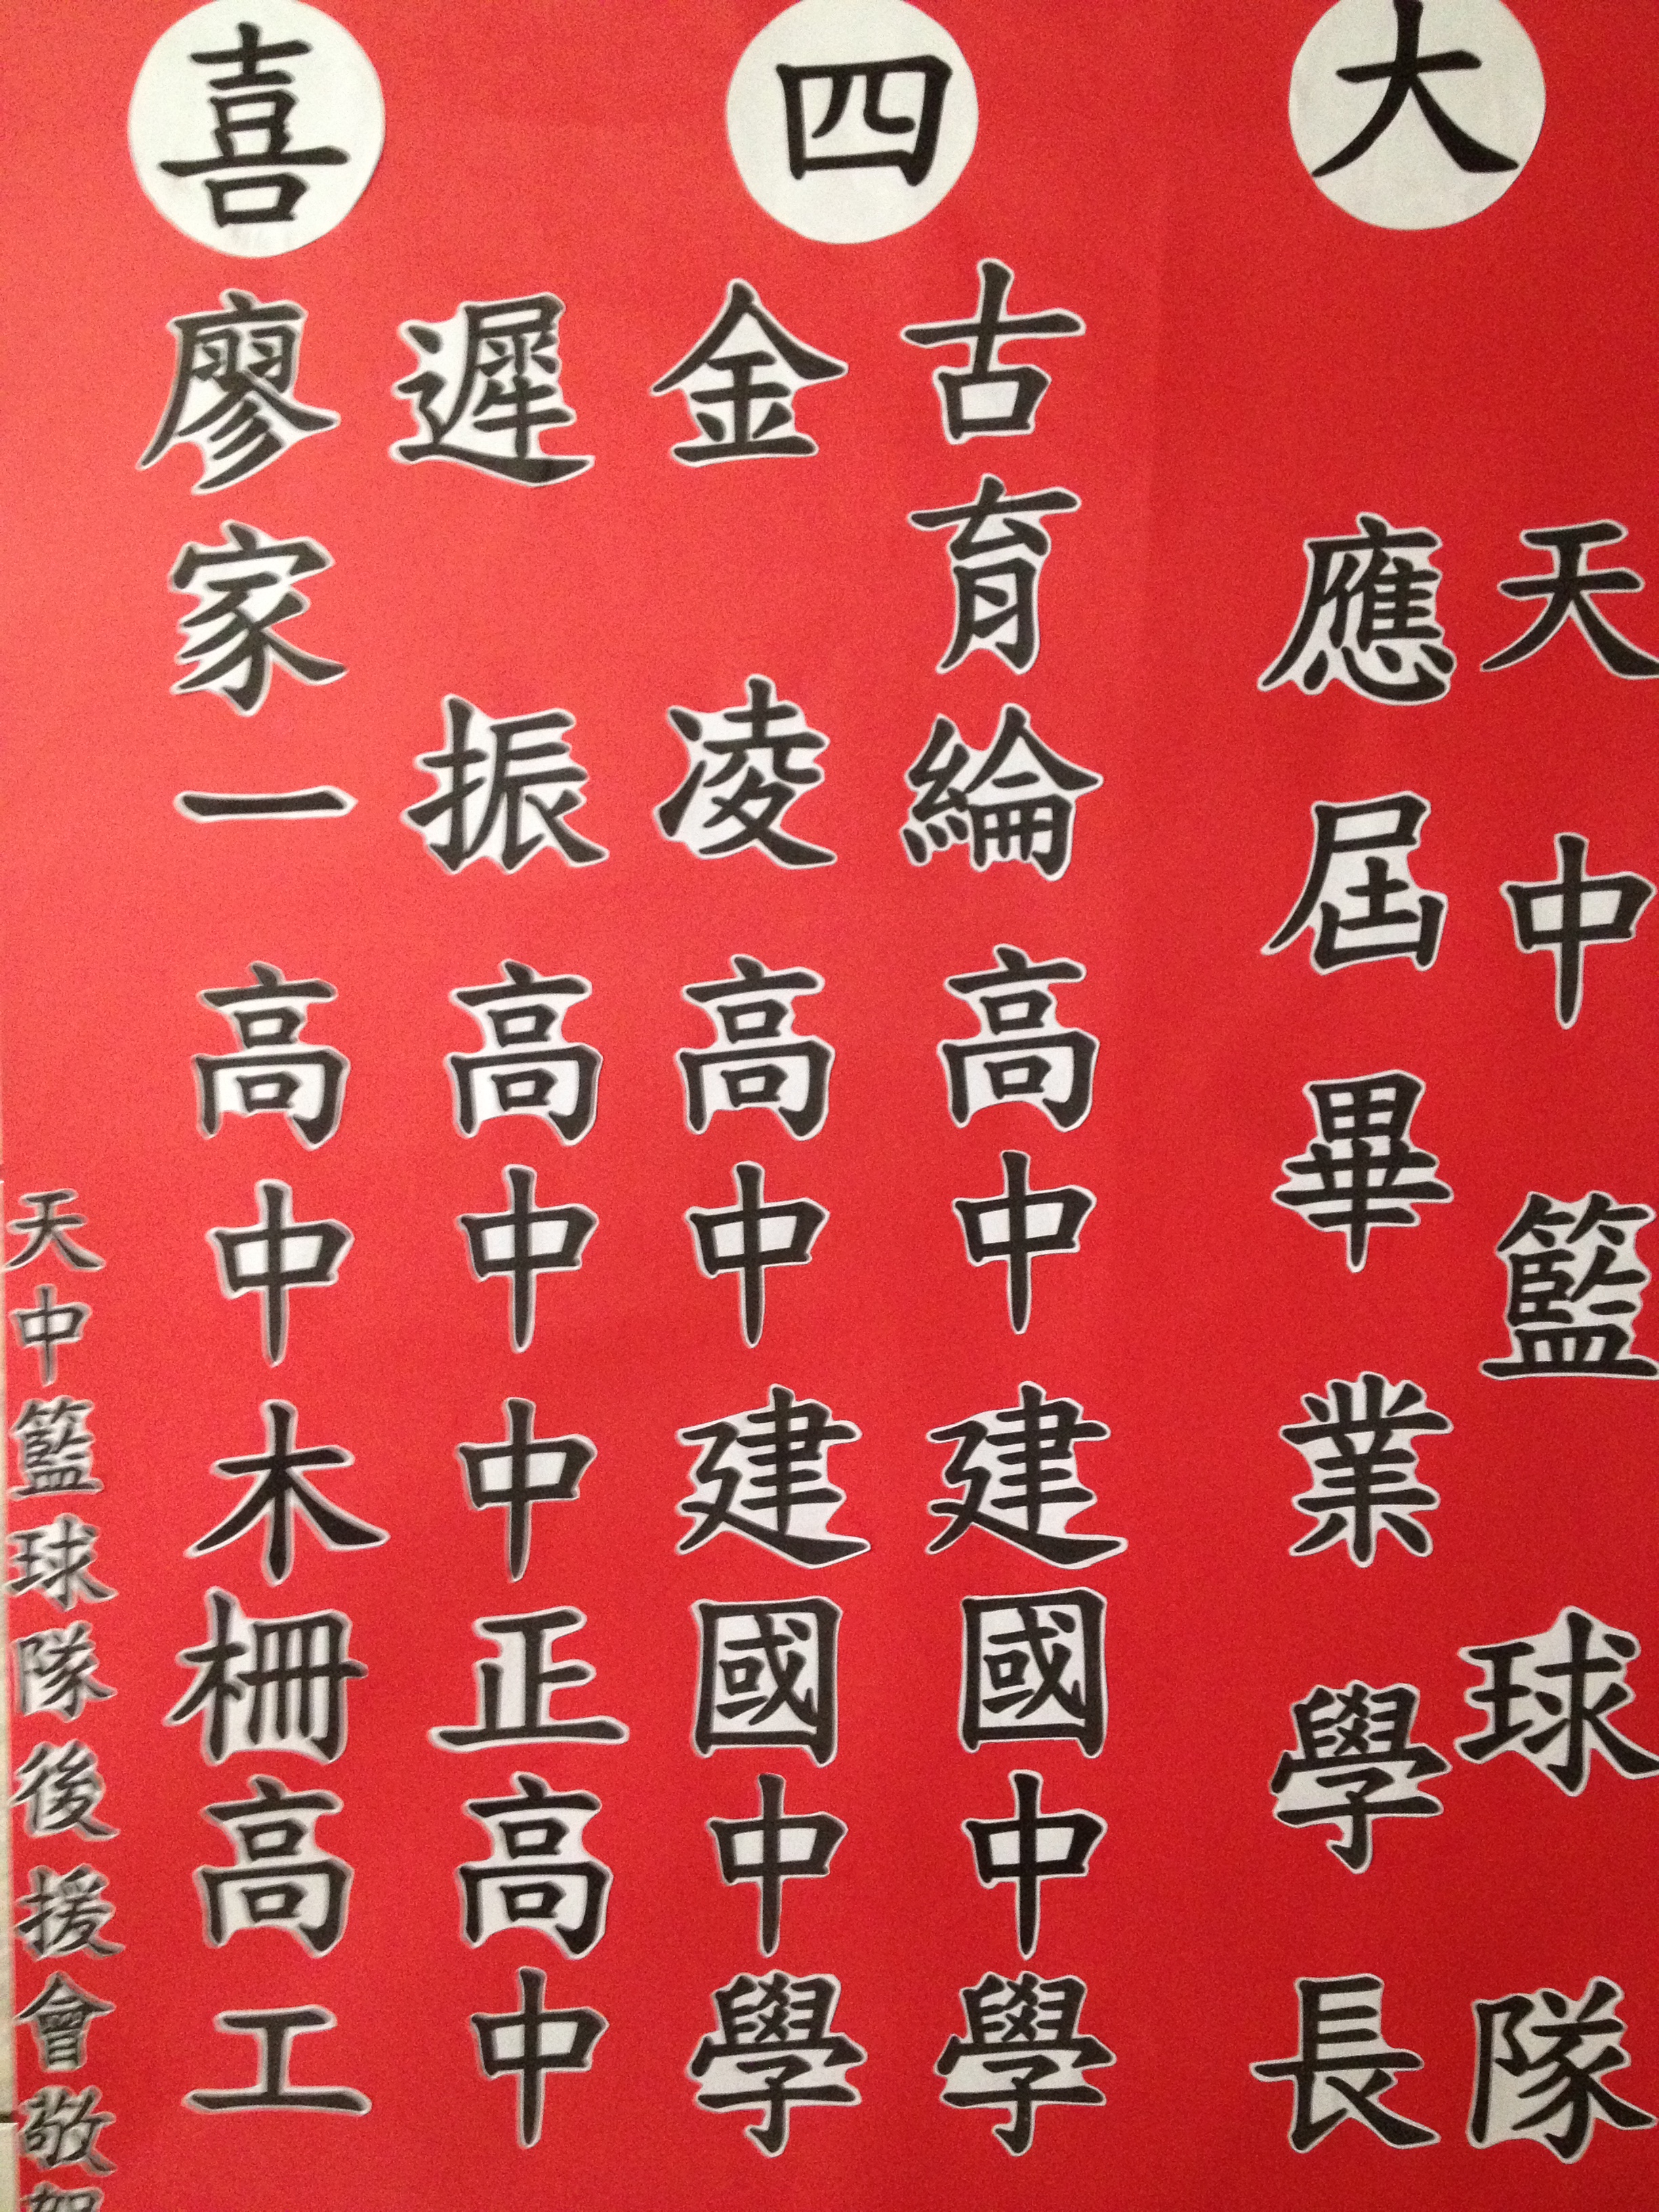 大四喜
天中籃球隊
應屆畢業學長
古育綸高中建國中學
金凌高中建國中學
遲振高中中正高中
廖家一高中木柵高工
天中籃球隊後援會敬賀